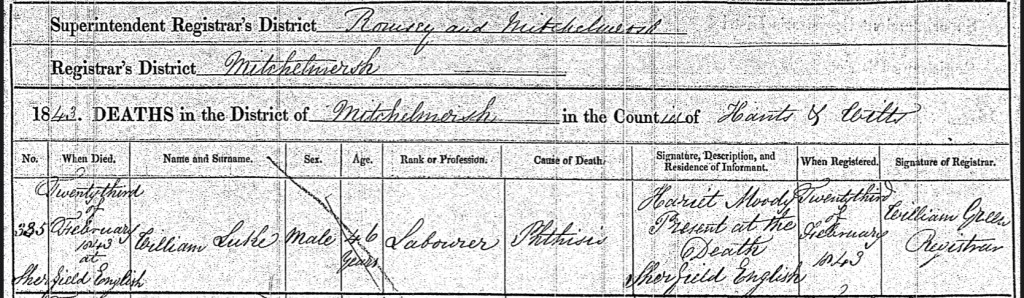 Superintendent Registrar's District Romsey and Mitchelmersh
Registrar's District Mitchelmersh
1843. DEATHS in the District of Mitchelmersh in the Counties of Hants & Wilts
No. When Died. Name and Surname. Sex. Age. Rank or Profession. Cause of Death. Signature, Description, and Residence of Informant. When Registered. Signature of Registrar.
325 Twenty third of February 1843 at Sherfield English William Luke Male 46 years Labourer Phthisis Hariet Moody Present at the Death Sherfield English Twenty third of February 1843 William Green Registrar